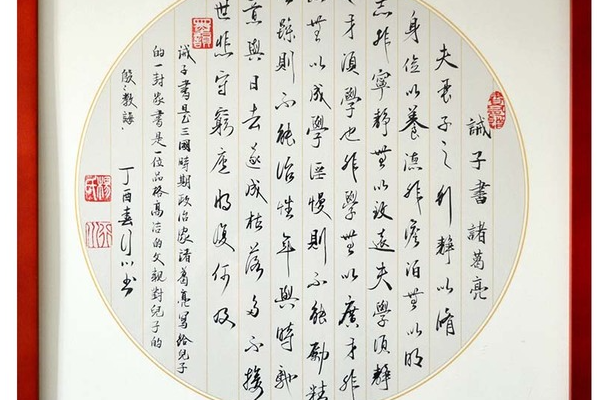 誡子書諸葛亮
夫君子之行靜以脩
身儉以養德非澹泊無以明
志非寧靜無以致遠夫學須靜
才須學也非學無以廣才非
無以成學淫慢則不能勵精
躁則不能治性年與時馳
意與日去遂成枯落多不接
世悲守窮廬將復何及
誡子書是三國時期政治家諸葛亮寫給兒子
的一封家書是一位品格高潔的父親對兒子的
殷々教誨.
丁酉春书